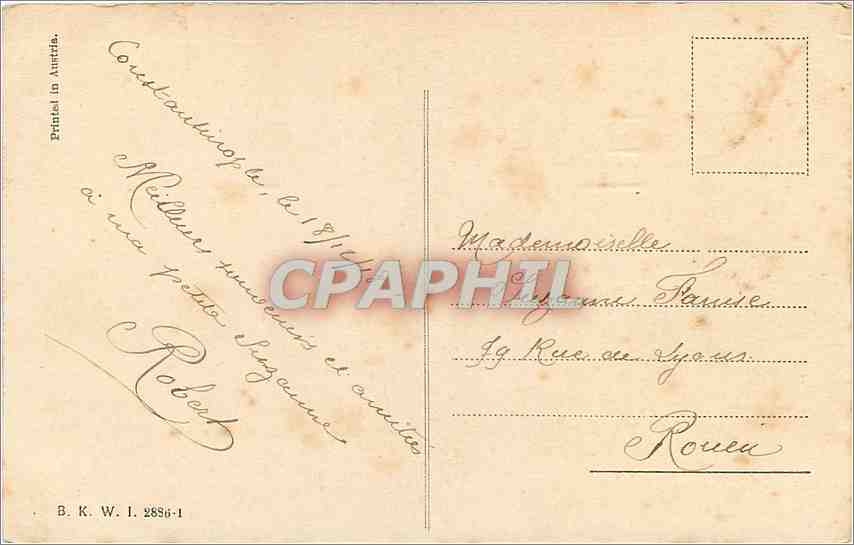 Printed in Austria.
Constantinople, le 18/12/
Meilleurs souvenirs et amitiés
à ma petite Suzanne
Robert
Mademoiselle
Suzanne
79 Rue de Lyons
Rouen
CPAPHIL
B. K. W. I. 2886-1